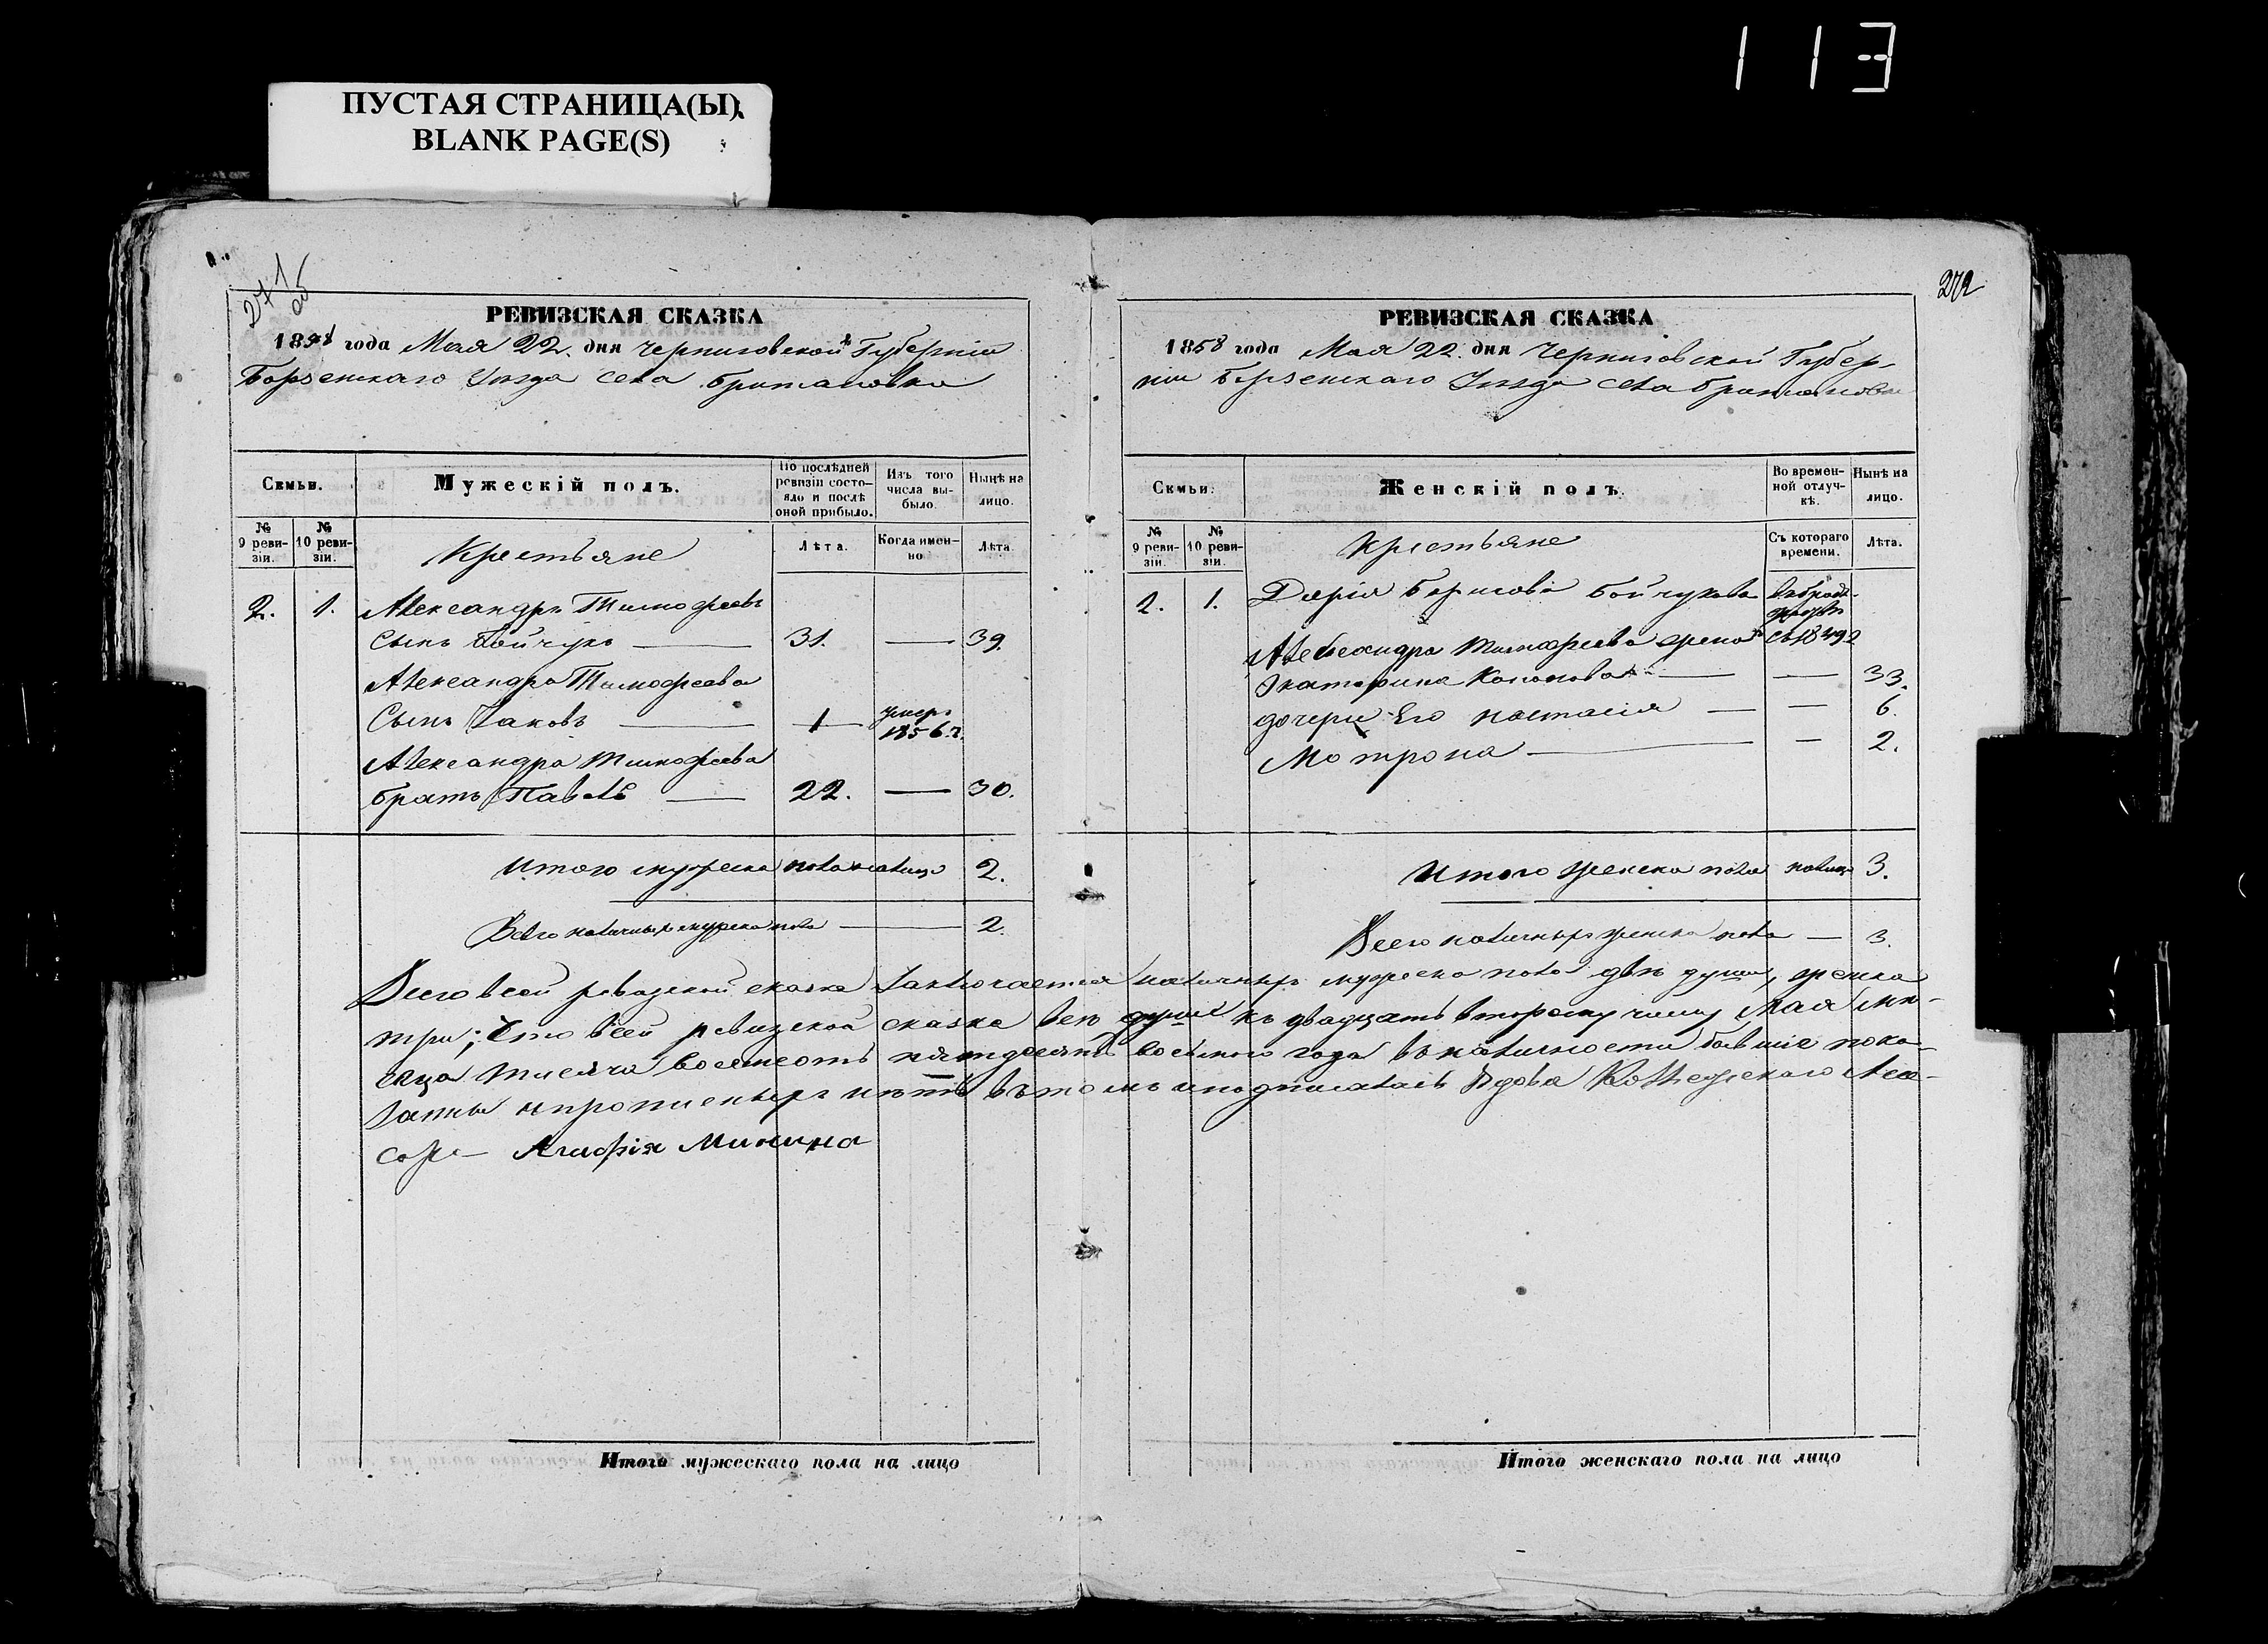 113
ПУСТАЯ СТРАНИЦА(Ы)
BLANK PAGE(S)
271
об
РЕВИЗСКАЯ СКАЗКА
1858 года Мая 22. дня Черниговской Губерніи
Борзенскаго Уезда села Британовки
Семьи.
Мужескій полъ.
По послѣдней ревизіи состояло и послѣ оной прибыло.
Изъ того числа выбыло.
Нынѣ на лицо.
№ 9 ревизіи.
№ 10 ревизіи.
Крестьяне
Лѣта.
Когда именно
Лѣта.
2. 1. Александръ Тимофеевъ
Сынъ Бойчукъ — 31. — 39.
Александра Тимофеева
Сынъ Яковъ — 1 умеръ 1856.г.
Александра Тимофеева
братъ Павелъ — 22. — 30.
Итого мужеска пола налицо 2.
Всего наличныхъ мужеска пола — 2.
272
РЕВИЗСКАЯ СКАЗКА
1858 года Мая 22. дня Черниговской Губер-
ніи Борзенскаго Уезда села Британовки
Семьи.
Женскій полъ.
Во временной отлучкѣ.
Нынѣ на лицо.
№ 9 ревизіи.
№ 10 ревизіи.
Крестьяне
Съ котораго времени.
Лѣта.
2. 1. Дарія Борисова Бойчукова
съ 1849г
Александра Тимофеева жена
Екатерина Кононова — — 33.
дочери Его Настасія — — 6.
Мотрона — — 2.
Итого женска пола налицо 3.
Всего наличныхъ женска пола — 3.
Всего всей ревизской сказке заключается наличныхъ мужеска пола две души, женска
три; Что всей ревизской сказке все души къ двадцать второму числу Мая ме-
сяца тысяча восемсотъ пятдесятъ восьмого года въ наличности бывшіе пока-
заны и прописныхъ нетъ въ томъ и подписалась Вдова Коллежскаго Асе-
сора Агафія Минина
Итого мужескаго пола на лицо
Итого женскаго пола на лицо